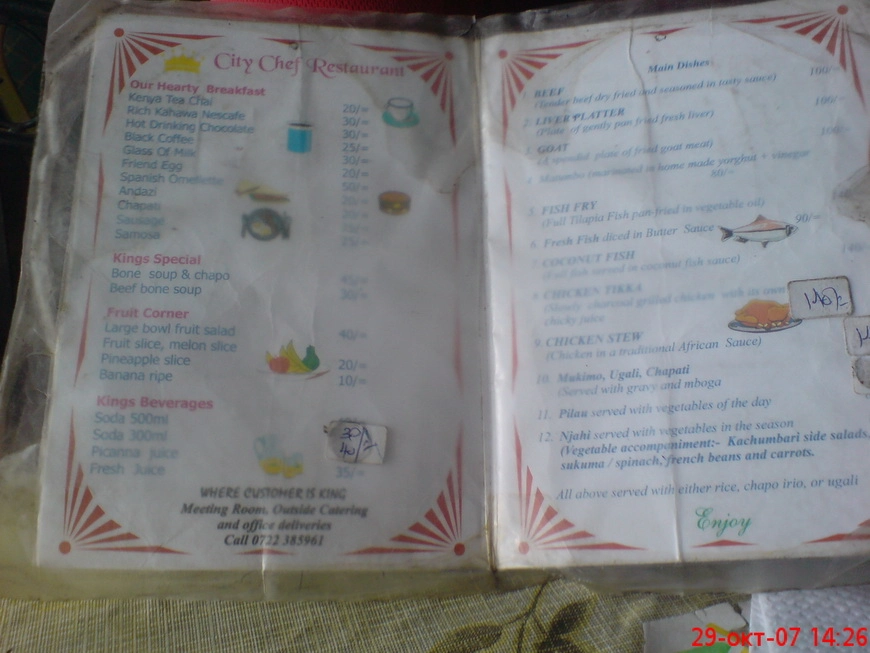 City Chef Restaurant
Our Hearty Breakfast
Kenya Tea Chai 20/=
Rich Kahawa Nescafe 30/=
Hot Drinking Chocolate 30/=
Black Coffee 25/=
Glass Of Milk 30/=
Friend Egg 20/=
Spanish Omellette 50/=
Andazi 20/=
Chapati 20/=
Sausage
Samosa
Kings Special
Bone soup & chapo
Beef bone soup
Fruit Corner
Large bowl fruit salad 40/=
Fruit slice, melon slice
Pineapple slice 20/=
Banana ripe 10/=
Kings Beverages
Soda 500ml
Soda 300ml
Picanna juice
Fresh Juice 35/=
30/
40/
WHERE CUSTOMER IS KING
Meeting Room, Outside Catering
and office deliveries
Call 0722 385961
Main Dishes
1. BEEF 100/=
(Tender beef dry fried and seasoned in tasty sauce)
2. LIVER PLATTER 100/=
(Plate of gently pan fried fresh liver)
3. GOAT 100/=
(A splendid plate of fried goat meat)
4. Matumbo (marinated in home made yorghut + vinegar
80/=
5. FISH FRY
(Full Tilapia Fish pan-fried in vegetable oil)
6. Fresh Fish diced in Butter Sauce 90/=
7. COCONUT FISH 140/=
(Full fish served in coconut fish sauce)
8. CHICKEN TIKKA
(Slowly charcoal grilled chicken with its own
chicky juice
140/-
9. CHICKEN STEW
(Chicken in a traditional African Sauce)
10. Mukimo, Ugali, Chapati
(Served with gravy and mboga
11. Pilau served with vegetables of the day
12. Njahi served with vegetables in the season
(Vegetable accompaniment:- Kachumbari side salads,
sukuma / spinach, french beans and carrots.
All above served with either rice, chapo irio, or ugali
Enjoy
29-окт-07 14:26